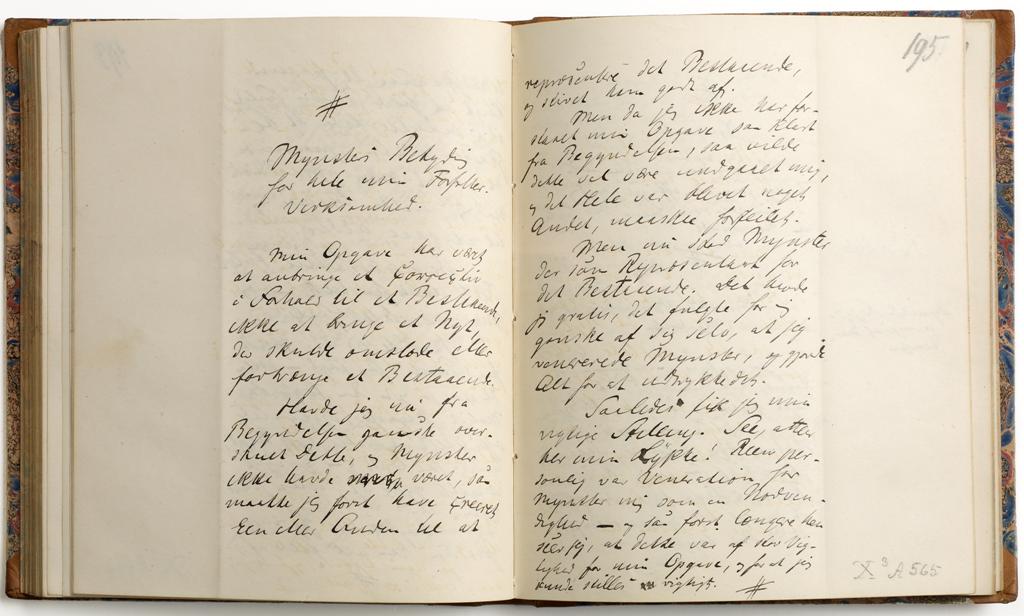 #
Mynsters Betydning
for hele min Forfatter-
Virksomhed.
Min Opgave har været
at anbringe et Correctiv
i Forhold til et Bestaaende,
ikke at bringe et Nyt,
der skulde omstøde eller
fortrænge et Bestaaende.
Havde jeg nu fra
Begyndelsen ganske over-
skuet dette, og Mynster
ikke havde været, saa
maatte jeg først have creeret
Een eller Anden til at
195.
repræsentere det Bestaaende,
og stivet ham godt af.
Men da jeg ikke har for-
staaet min Opgave saa klart
fra Begyndelsen, saa vilde
dette vel være undgaaet mig,
og det Hele var blevet noget
Andet, maaskee forfeilet.
Men nu stod Mynster
der som Repræsentant for
det Bestaaende. Det havde
jeg gratis, det fulgte for mig
ganske af sig selv, at jeg
venererede Mynster, og gjorde
Alt for at udtrykke det.
Saaledes fik jeg min
rigtige Stilling. See, atter
her min Lykke! Reen per-
sonlig var Veneration for
Mynster mig som en Nødven-
dighed – og saa først længere hen
seer jeg, at dette var af stor Vig-
tighed for min Opgave, og for at jeg
kunde stilles rigtigt.
#
X³ A 565